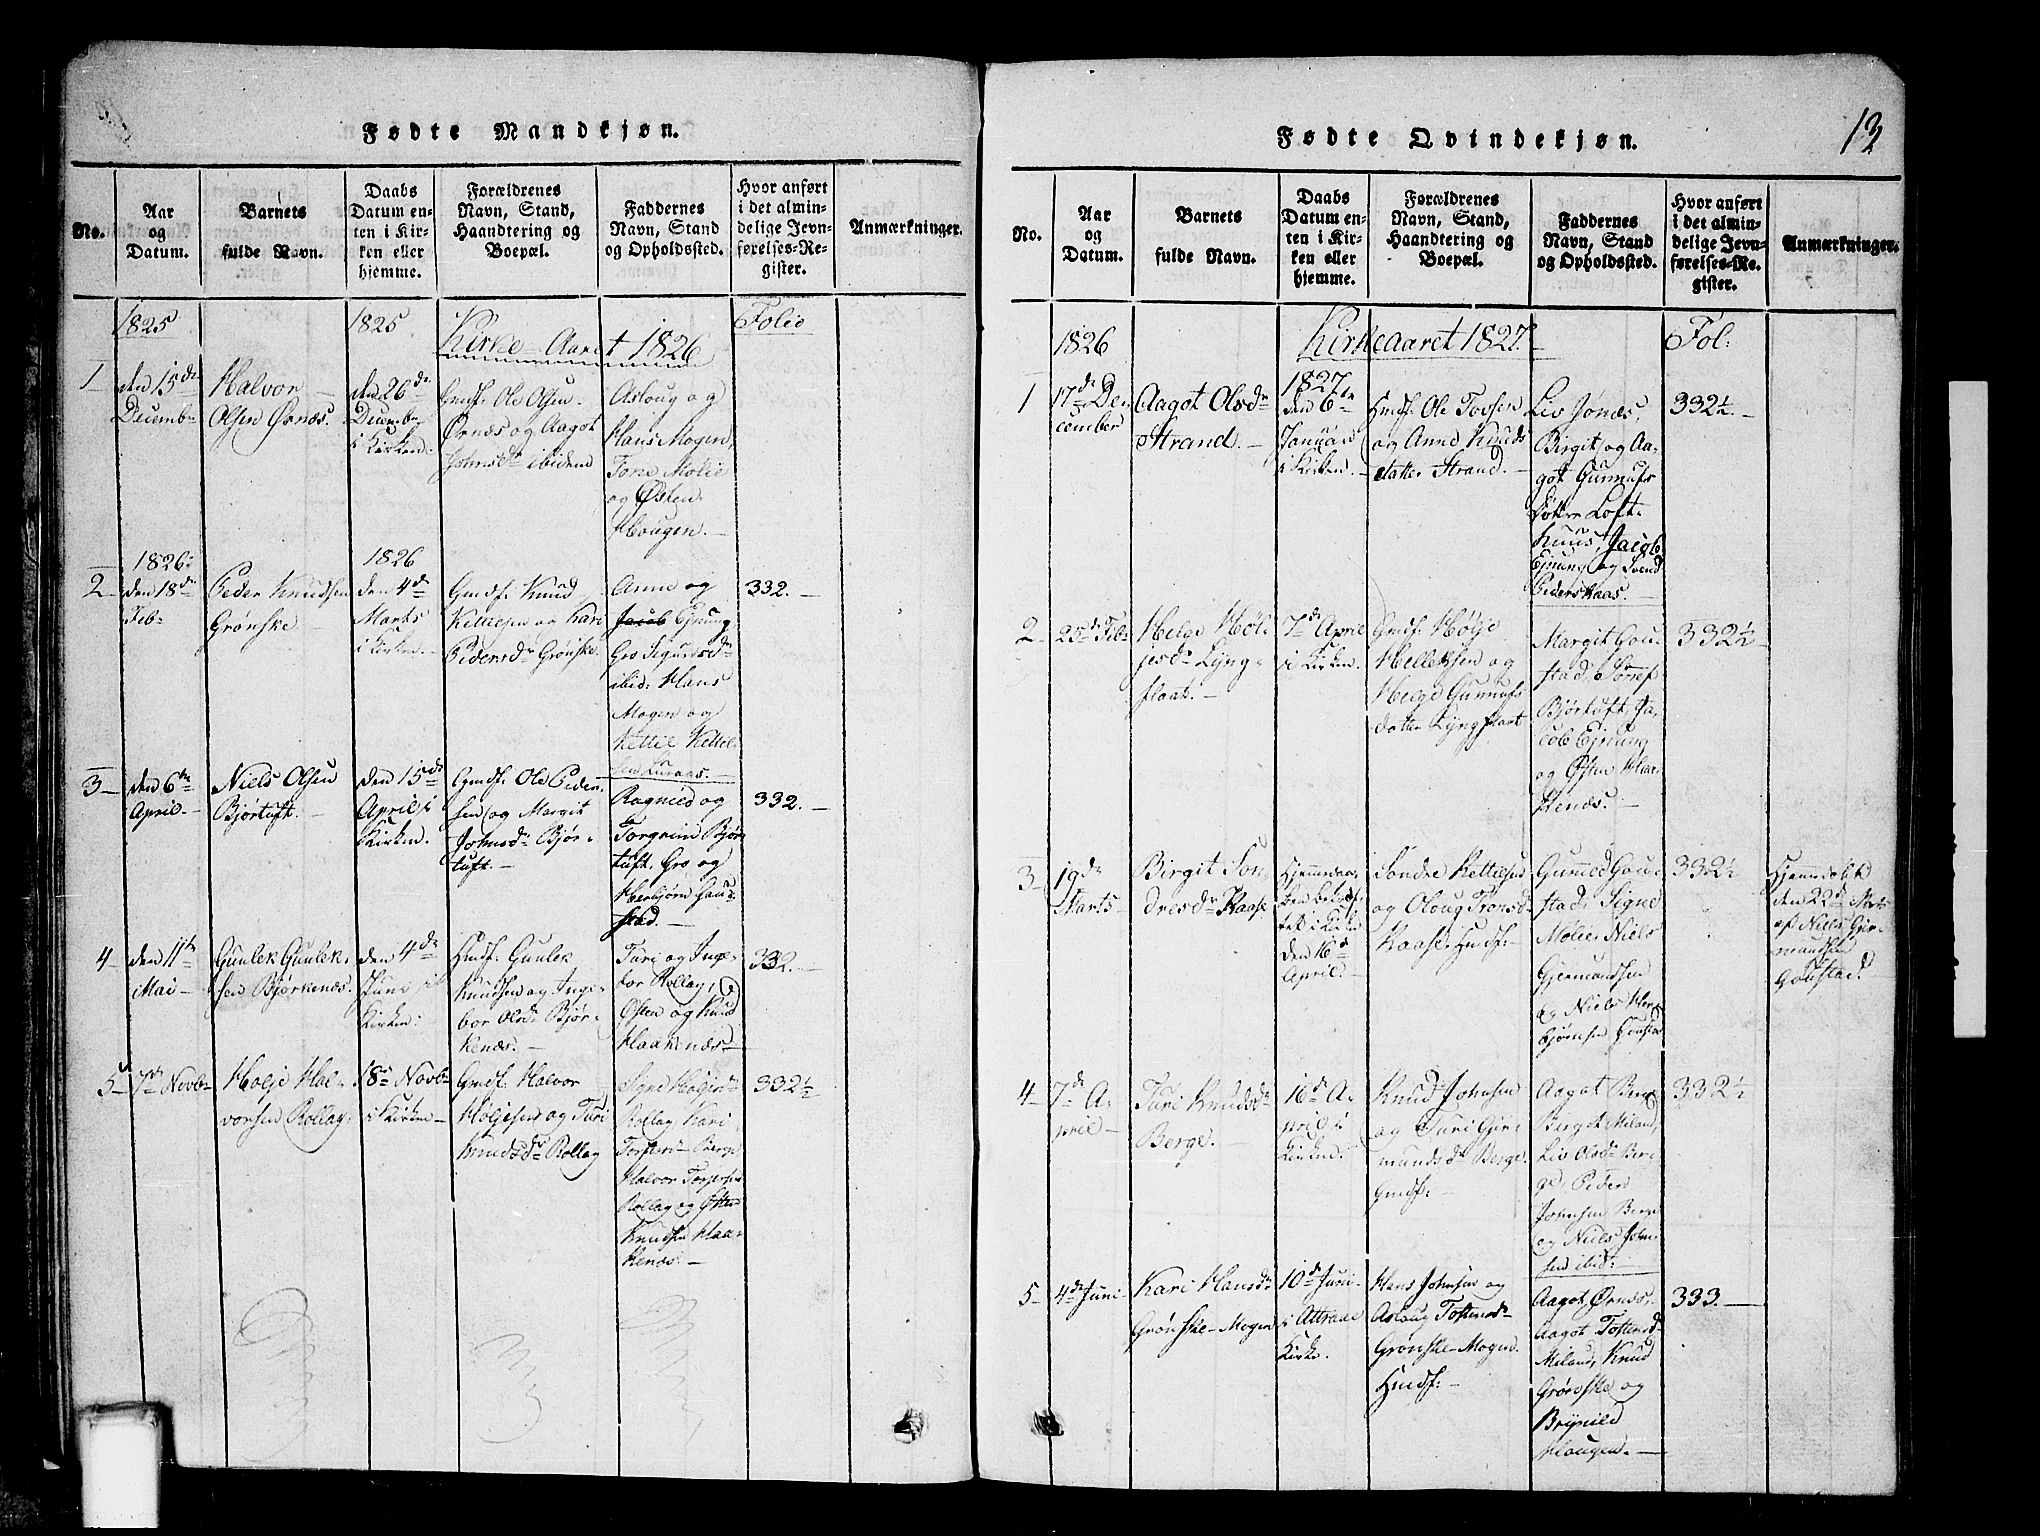 Fødte Mandkjøn.
No.
Aar
og
Datum.
Barnets
fulde Navn.
Daabs
Datum en-
ten i Kir-
ken eller
hjemme.
Forældrenes
Navn, Stand,
Haandtering og
Boepæl.
Faddernes
Navn, Stand
og Opholdssted.
Hvor anført
i det almin-
delige Jevn-
førelses-Re-
gister.
Anmærkninger.
Kirke-Aaret 1826
1825
1825
Folio
1
den 15de
Decembr
Halvor
Olsen Ørnæs.
den 26de
Decembr
i Kirken.
Gmdf. Ole Olsen
Ørnæs og Aagot
Johnsdr ibidem
Aslaug og
Hans Mogen,
Tone Molie
og Østen
Hougen.
2
1826
den 18de
Feb:
Peder Knudsen
Grønske
1826
den 4de
Marts
i Kirken.
Gmdf. Knud
Kittilsen og Kari
Pedersdr Grønske.
Anne og
Jacob Ejnung
Gro Sigurdsdr
ibid: Hans
Mogen og
Kettil Kettil-
sen Luraas.
332.
3
den 6te
April
Niels Olsen
Bjørtuft.
den 15de
April i
Kirken.
Gmdf. Ole Peder-
sen og Margit
Johnsdr Bjør-
tuft.
Ragnild og
Torgrim Bjør
tuft. Gro og
Herbjørn Gaus-
stad.
332.
4
den 11te
Mai
Gunlek Gunlek-
sen Bjørkenæs.
den 4de
Juni i
Kirken:
Hmdf. Gunlek
Knudsen og Inge-
bor Olsdr Bjør-
kenæs.
Turi og Inge-
bor Rollag,
Østen og Knud
Haakenæs
332.
5
7de Novbr
Holje Hal-
vorsen Rollag,
18de Novbr
i Kirken
Gmdf. Halvor
Høljesen og Turi
Knudsdr Rollag
Signe Høljesdr
Rollag, Kari
Torsteinsdr Berge
Halvor Torgersen
Rollag og Østen
Knudsen Haa-
kenæs.
332½
Fødte Qvindekjøn.
13
No.
Aar
og
Datum.
Barnets
fulde Navn.
Daabs
Datum en-
ten i Kir-
ken eller
hjemme.
Forældrenes
Navn, Stand,
Haandtering og
Boepæl.
Faddernes
Navn, Stand
og Opholdssted.
Hvor anført
i det almin-
delige Jevn-
førelses-Re-
gister.
Anmærkninger.
1826
Kirkeaaret 1827.
Fol:
1
17de De-
cember
Aagot Olsdr
Strand.
1827
den 6te
Januari
i Kirken.
Hmdf. Ole Tovsen
og Anne Knuds
datter Strand.
Liv Jønæs,
Birgit og Aa-
got Gunnufs
Døttre Loft-
huus, Jacob
Ejnung og Svend
Pederskaas.
332½.
2
25de Feb:
Helge Høl-
jesdr Lyng-
float.
7de April
i Kirken.
Gmdf. Hølje
Helleksen og
Helge Gunnufs
datter Lyngfloat
Margit Gou-
stad, Tonnef
Bjørtuft, Ja-
cob Ejnung
og Østen Haa-
kenæs.
332½
3
19de
Marts
Birgit Son-
dresdr Kaase
Hjemmedaa-
ben bekræf-
tet i Kirken
den 16de
April
Sondre Kettilsen
og Oloug Tronsdr
Kaase. Hmdf:
Gunnild Gou-
stad, Signe
Molie, Niels
Gjermundsen
og Niels Her-
bjørnsen Goustad
332½
Hjemmedøbt
den 22de Marts
af Niels Gjer-
mundsen
Goustad.
4
7de A-
pril
Turi Knudsdr
Berge.
16de A-
pril i
Kirken:
Knud Johnsen
og Turi Gjer-
mundsdr Berge.
Gmdf:
Aagot Berge
Birgit Miland,
Liv Olsdr Ber-
ge, Peder
Johnsen Berge
og Niels John-
sen ibid:
332½
5
4de Juni
Kari Hansdr
Grønske-Mogen
10de Juni
i Attraae
Kirke.
Hans Johnsen og
Aslaug Tostensdr
Grønske-Mogen.
Hmdf:
Aagot Ørnæs,
Aagot Tostensdr
Miland, Knud
Grønske og
Brynild
Hougen.
333.